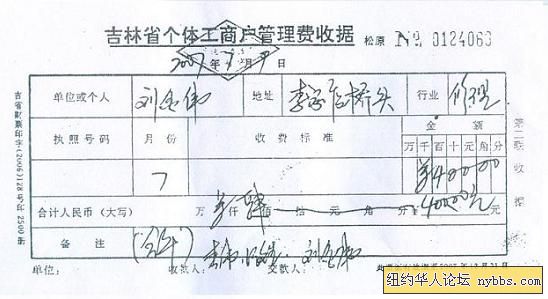 吉林省个体工商户管理费收据 松原 No 0124063
2007年 月 日
单位或个人 刘 伟 地址 李 桥头 行业 修理
执照号码 月份 收费标准 金额
万千百十元角分
7 ¥40000
合计人民币（大写） 万 仟 肆佰 拾 元 角 分 ¥ 400.00元
备注 （全年）
单位： 收款人： 交款人： 刘 伟
吉省财票印字(2006)128号 2500册
第二联 收据
纽约华人论坛 nybbs.com